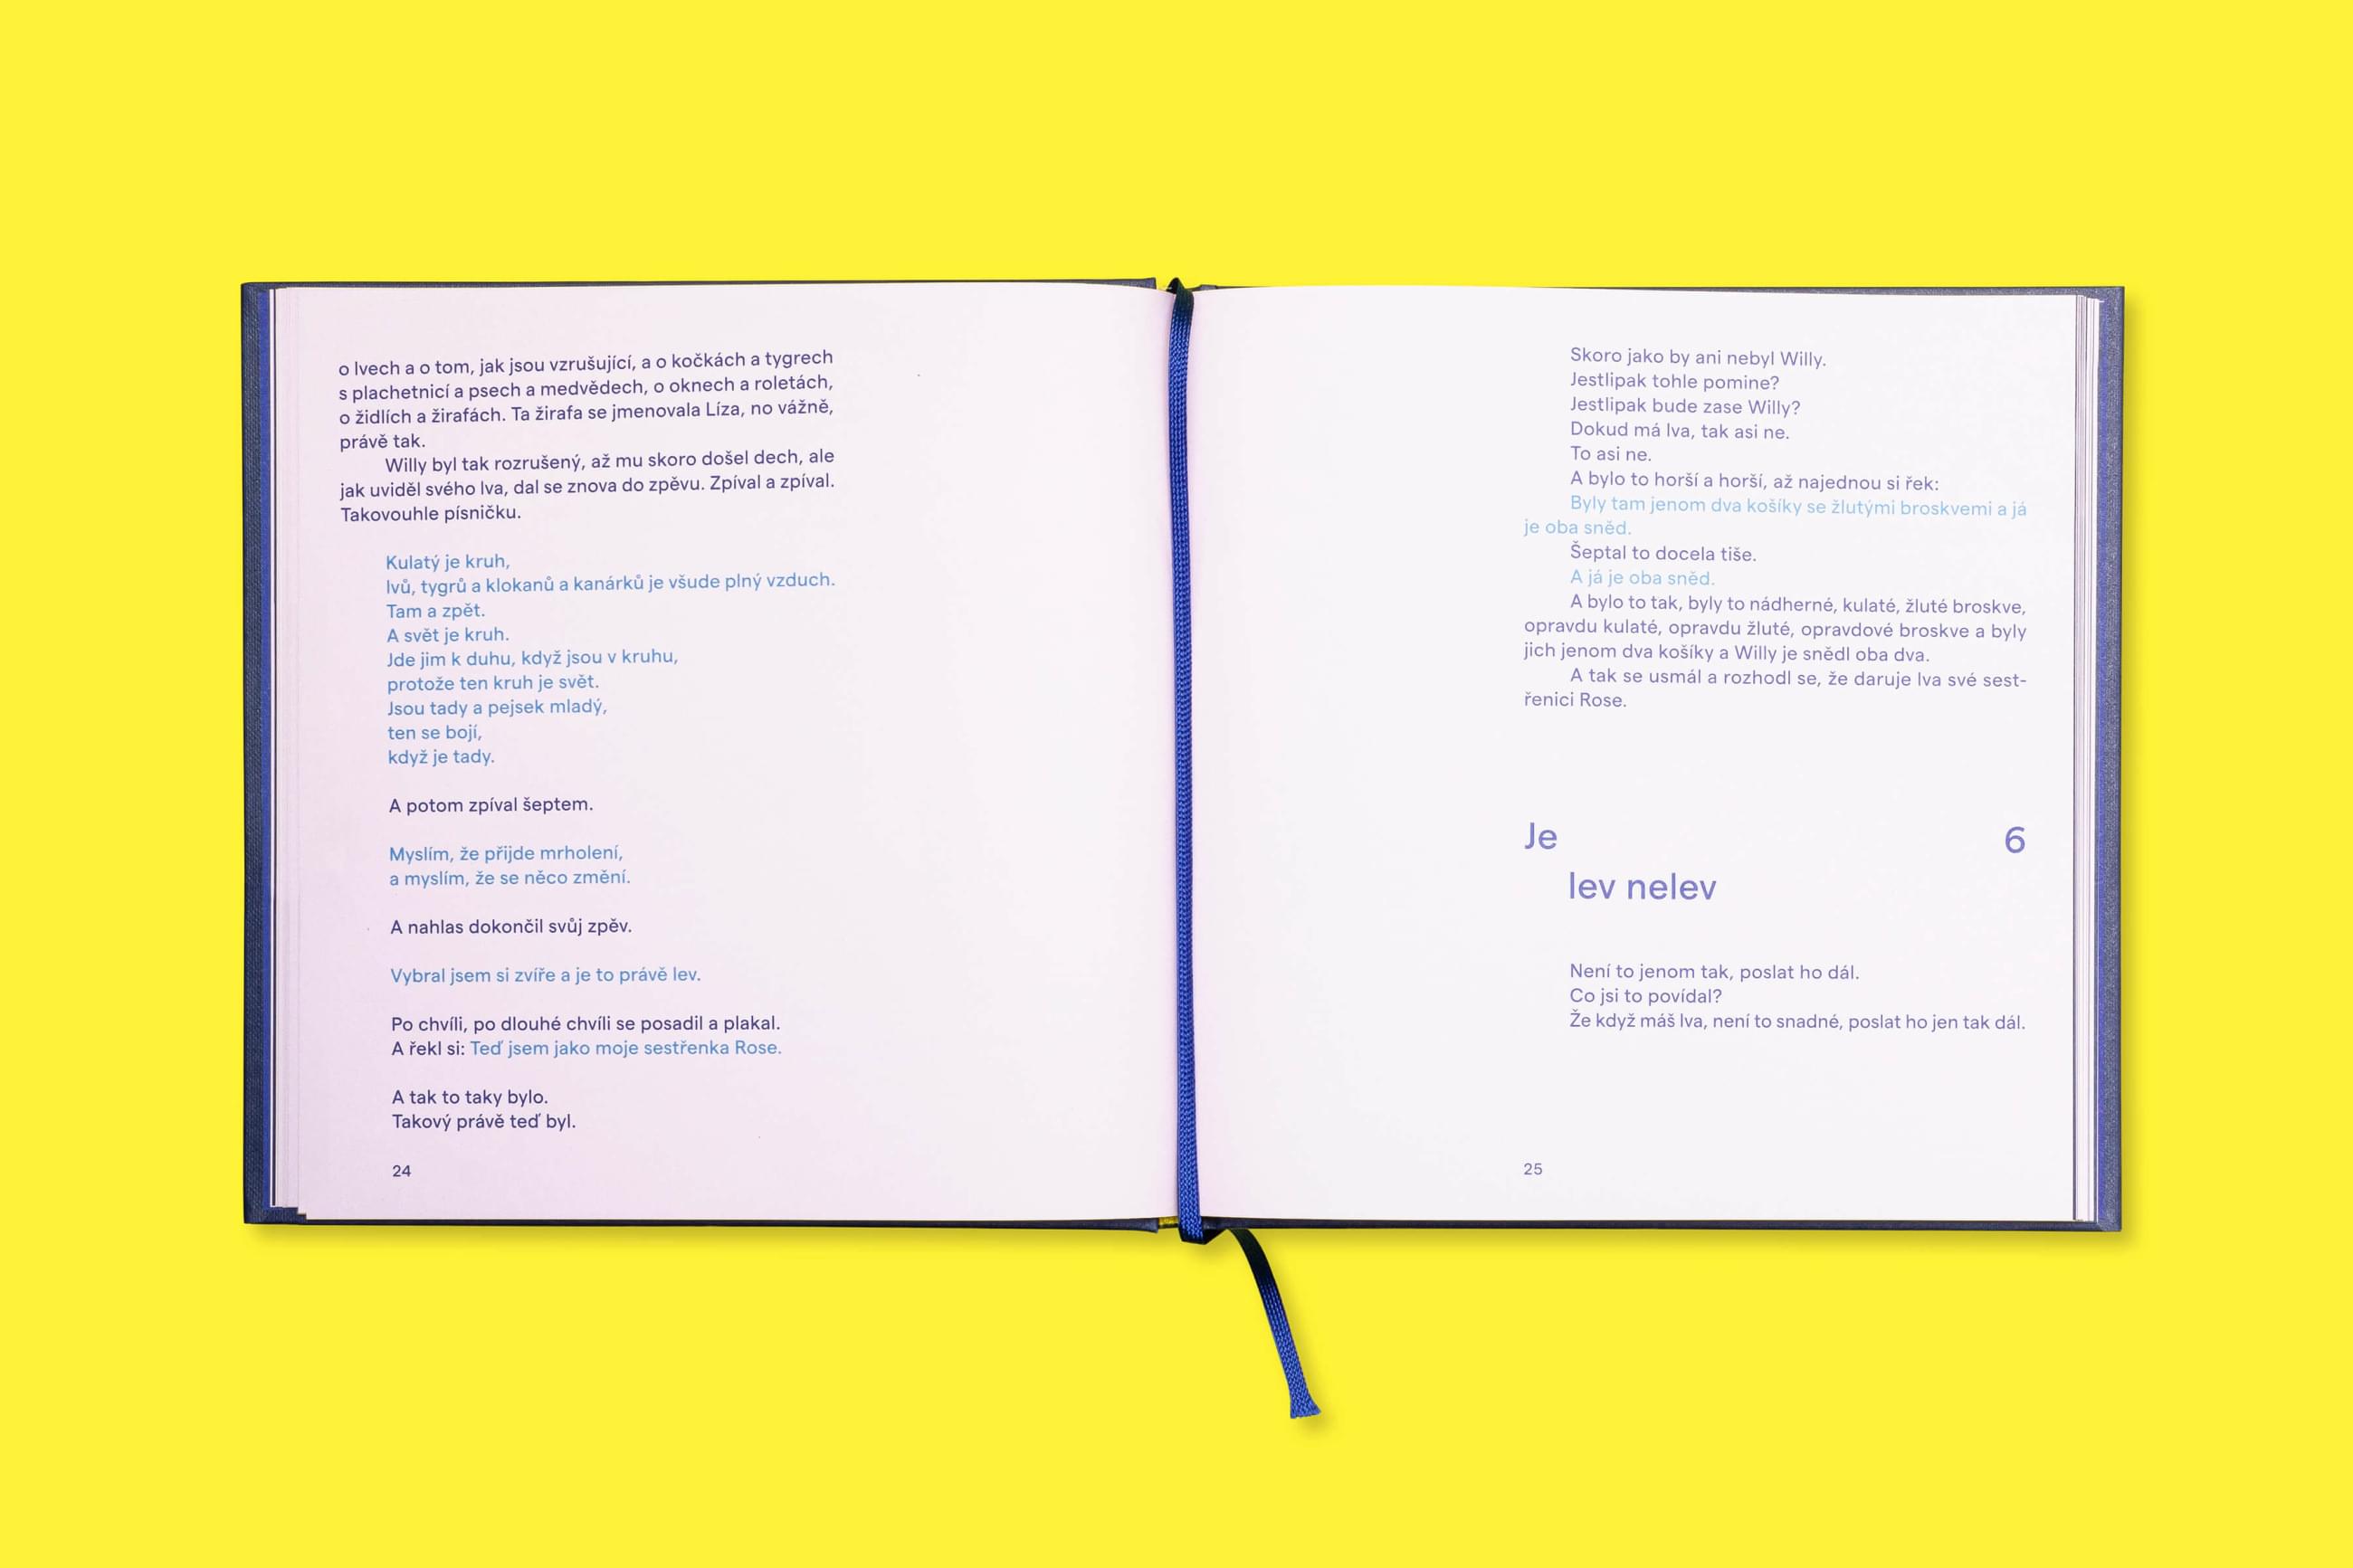 o lvech a o tom, jak jsou vzrušující, a o kočkách a tygrech
s plachetnicí a psech a medvědech, o oknech a roletách,
o židlích a žirafách. Ta žirafa se jmenovala Líza, no vážně,
právě tak.
Willy byl tak rozrušený, až mu skoro došel dech, ale
jak uviděl svého lva, dal se znova do zpěvu. Zpíval a zpíval.
Takovouhle písničku.
Kulatý je kruh,
lvů, tygrů a klokanů a kanárků je všude plný vzduch.
Tam a zpět.
A svět je kruh.
Jde jim k duhu, když jsou v kruhu,
protože ten kruh je svět.
Jsou tady a pejsek mladý,
ten se bojí,
když je tady.
A potom zpíval šeptem.
Myslím, že přijde mrholení,
a myslím, že se něco změní.
A nahlas dokončil svůj zpěv.
Vybral jsem si zvíře a je to právě lev.
Po chvíli, po dlouhé chvíli se posadil a plakal.
A řekl si: Teď jsem jako moje sestřenka Rose.
A tak to taky bylo.
Takový právě teď byl.
24
Skoro jako by ani nebyl Willy.
Jestlipak tohle pomine?
Jestlipak bude zase Willy?
Dokud má lva, tak asi ne.
To asi ne.
A bylo to horší a horší, až najednou si řek:
Byly tam jenom dva košíky se žlutými broskvemi a já
je oba sněd.
Šeptal to docela tiše.
A já je oba sněd.
A bylo to tak, byly to nádherné, kulaté, žluté broskve,
opravdu kulaté, opravdu žluté, opravdové broskve a byly
jich jenom dva košíky a Willy je snědl oba dva.
A tak se usmál a rozhodl se, že daruje lva své sest-
řenici Rose.
Je 6
lev nelev
Není to jenom tak, poslat ho dál.
Co jsi to povídal?
Že když máš lva, není to snadné, poslat ho jen tak dál.
25